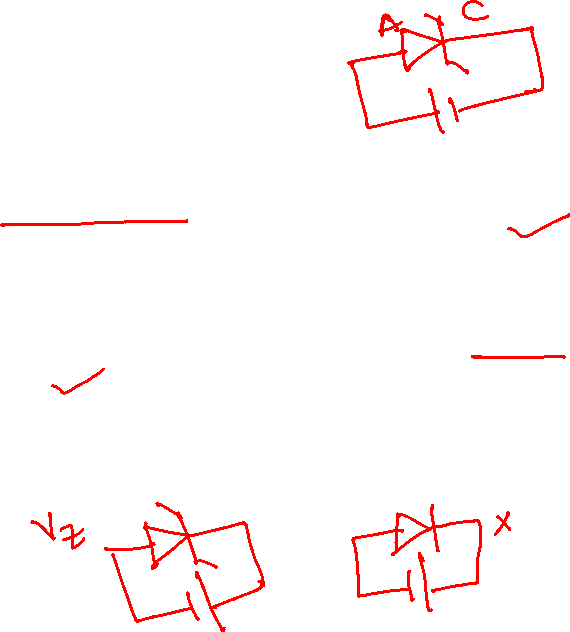 A C
Vz X